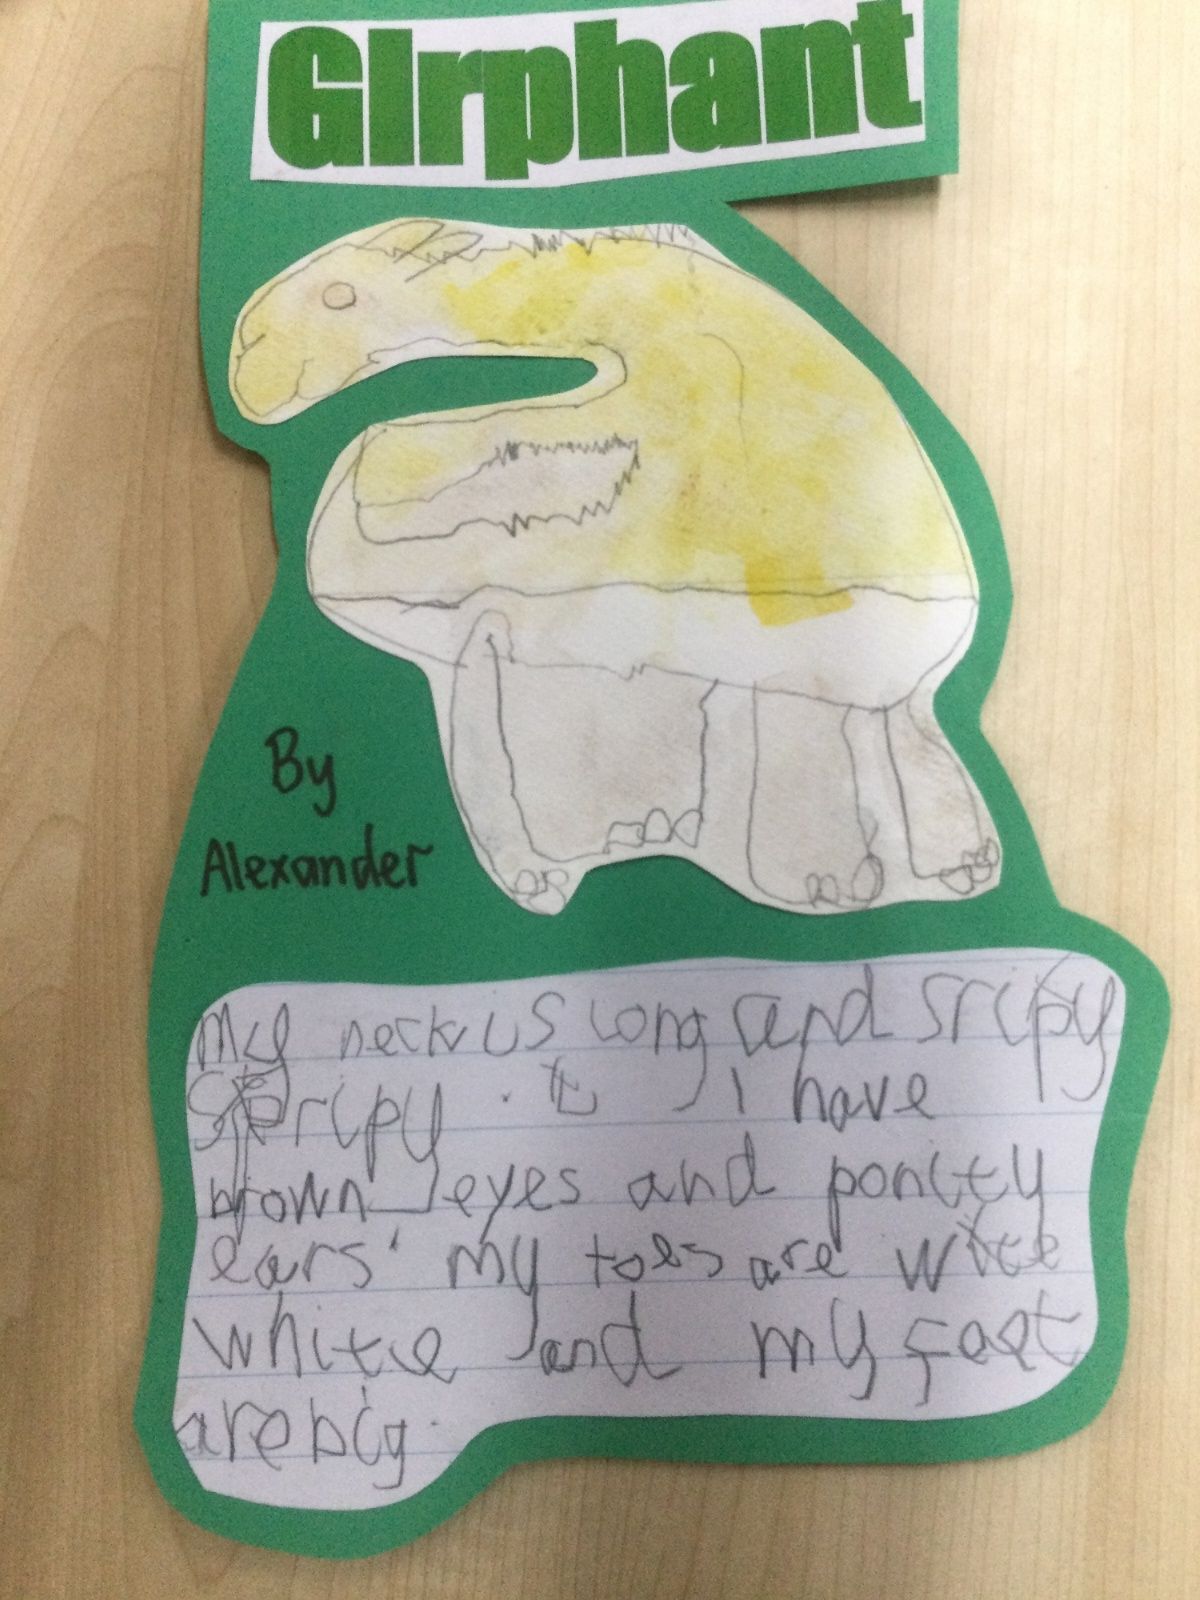 GIrphant
By
Alexander
My neck is long and sripy
stripy. I have
brown eyes and pointy
ears. my toes are wite
white and my feet
are big.